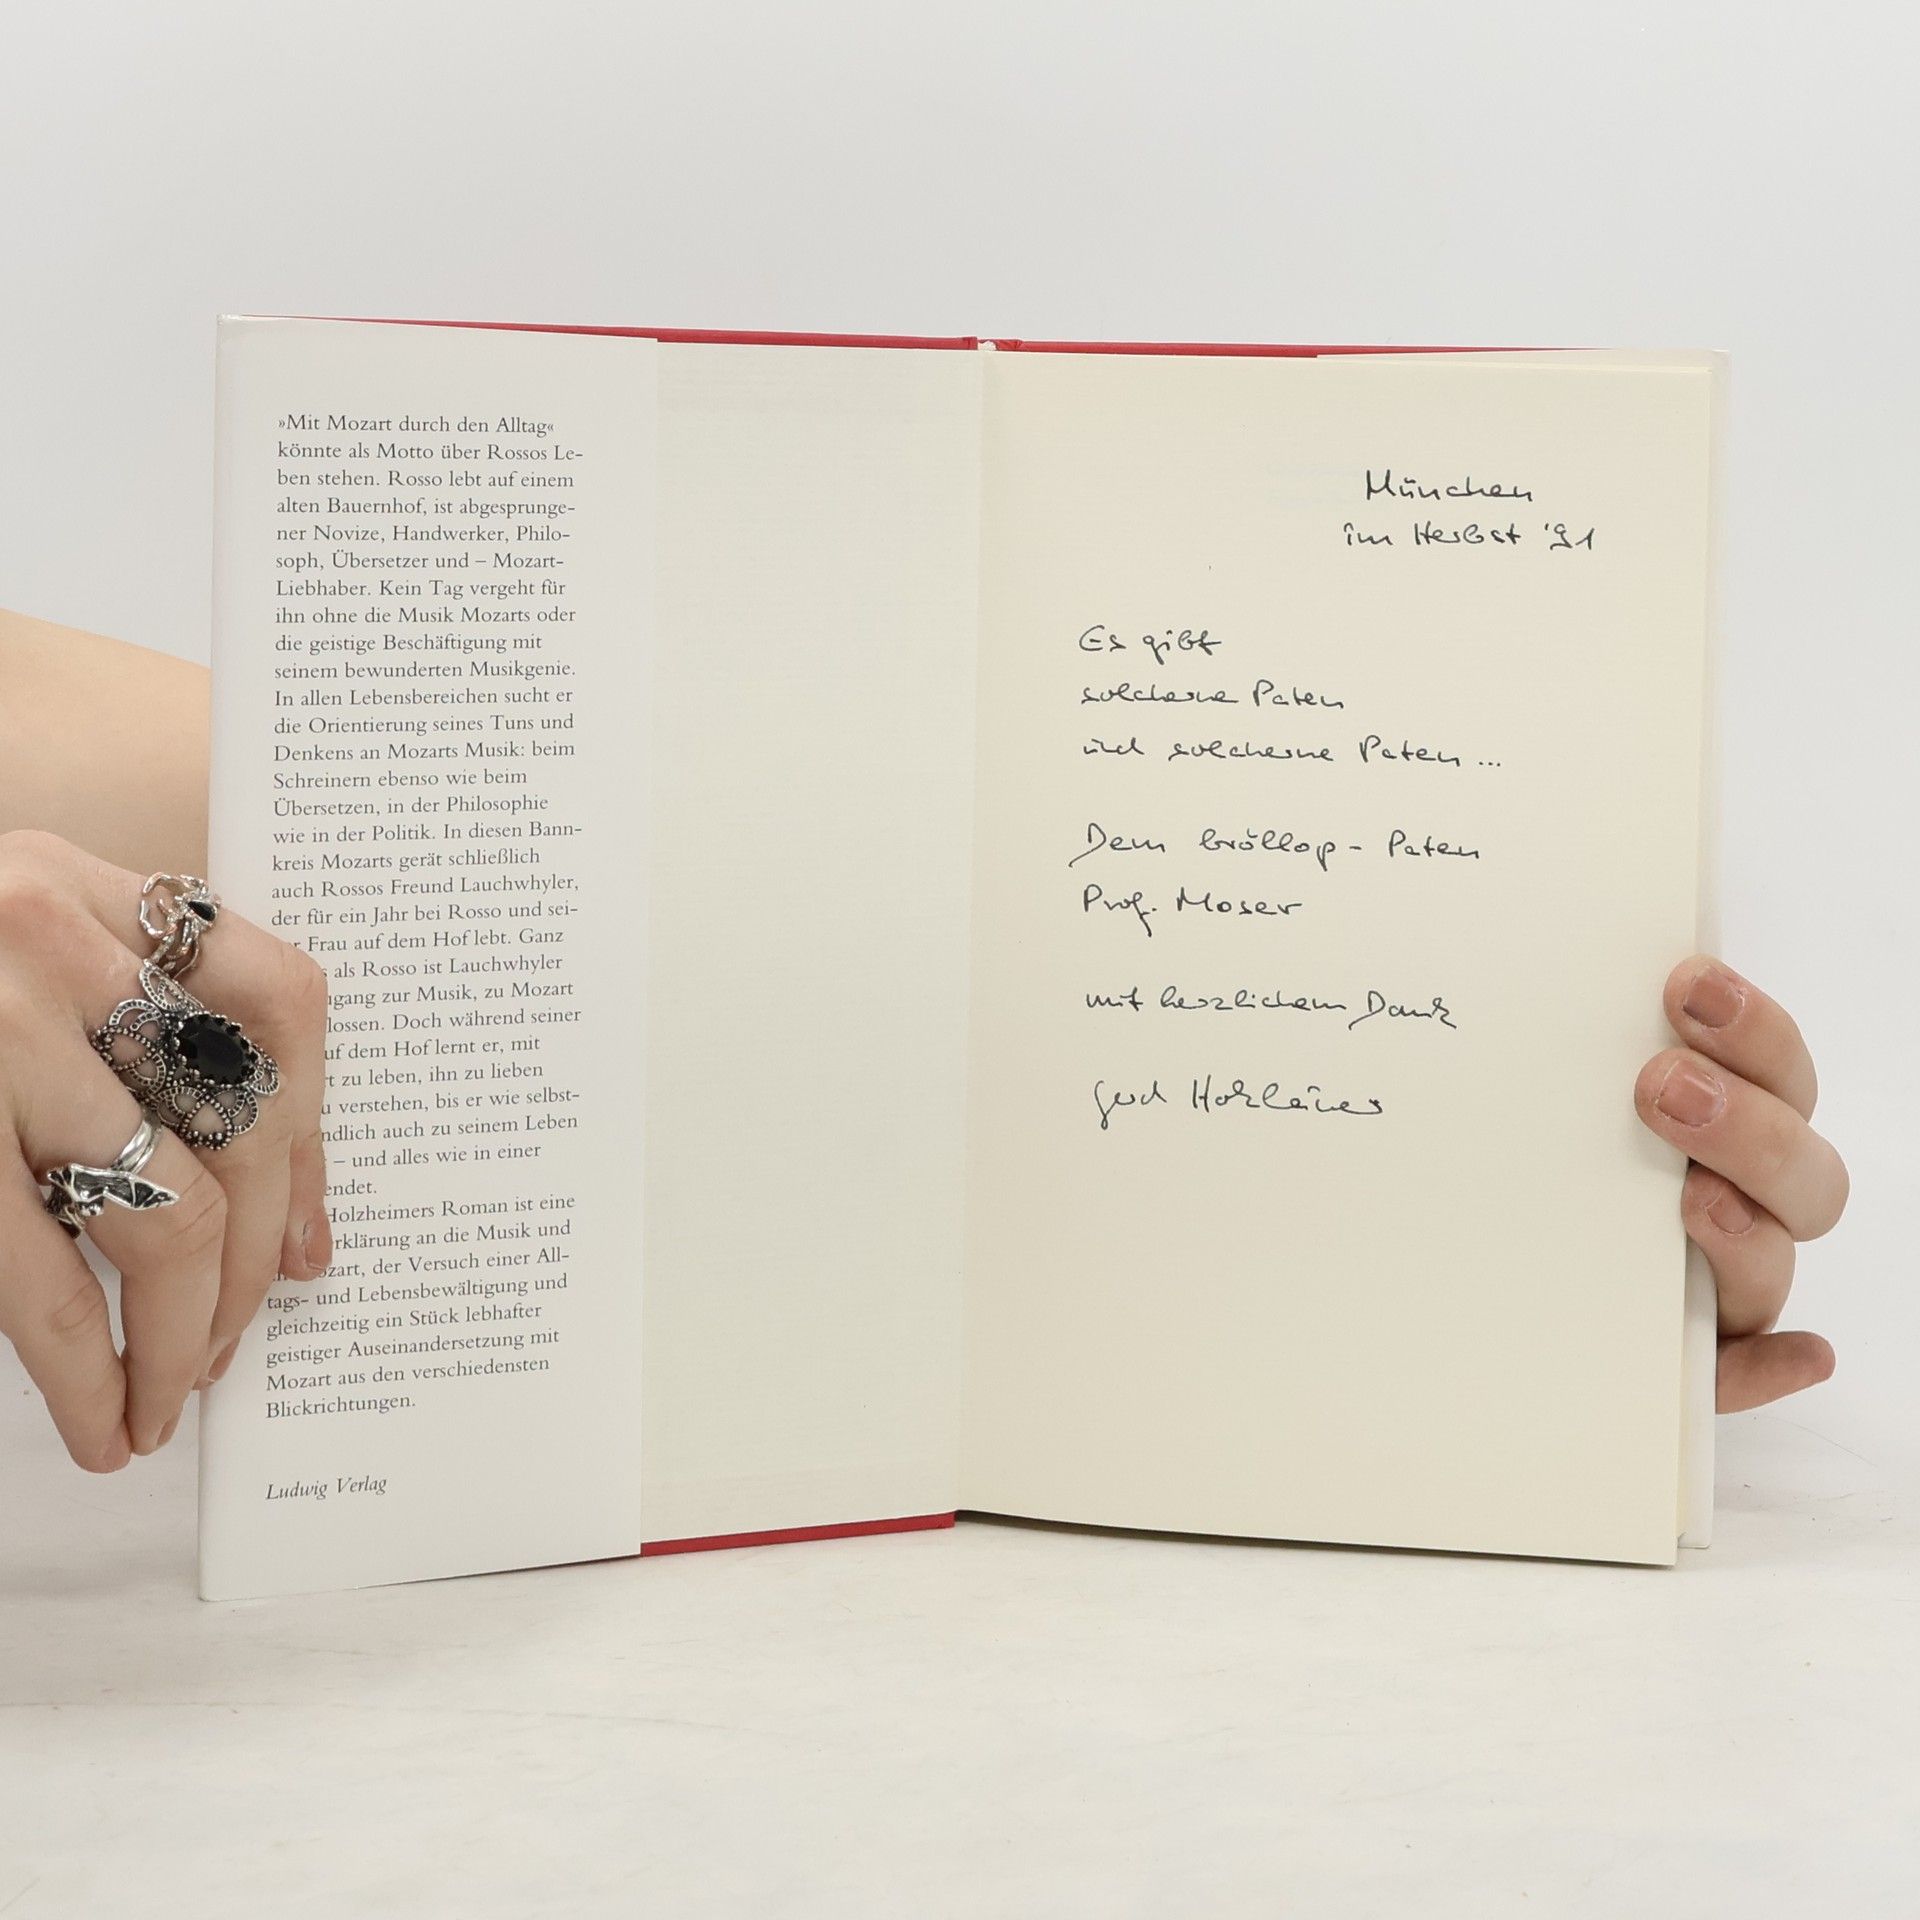 »Mit Mozart durch den Alltag«
könnte als Motto über Rossos Le-
ben stehen. Rosso lebt auf einem
alten Bauernhof, ist abgesprunge-
ner Novize, Handwerker, Philo-
soph, Übersetzer und – Mozart-
Liebhaber. Kein Tag vergeht für
ihn ohne die Musik Mozarts oder
die geistige Beschäftigung mit
seinem bewunderten Musikgenie.
In allen Lebensbereichen sucht er
die Orientierung seines Tuns und
Denkens an Mozarts Musik: beim
Schreinern ebenso wie beim
Übersetzen, in der Philosophie
wie in der Politik. In diesen Bann-
kreis Mozarts gerät schließlich
auch Rossos Freund Lauchwhyler,
der für ein Jahr bei Rosso und sei-
Frau auf dem Hof lebt. Ganz
als Rosso ist Lauchwhyler
zur Musik, zu Mozart
Doch während seiner
dem Hof lernt er, mit
zu leben, ihn zu lieben
verstehen, bis er wie selbst-
auch zu seinem Leben
– und alles wie in einer
Holzheimers Roman ist eine
an die Musik und
der Versuch einer All-
tags- und Lebensbewältigung und
gleichzeitig ein Stück lebhafter
geistiger Auseinandersetzung mit
Mozart aus den verschiedensten
Blickrichtungen.
Ludwig Verlag
München
im Herbst '91
Es gibt
solcherne Paten
und solcherne Paten ...
Dem bröllop - Paten
Prof. Moser
mit herzlichem Dank
Gerd Holzheimer